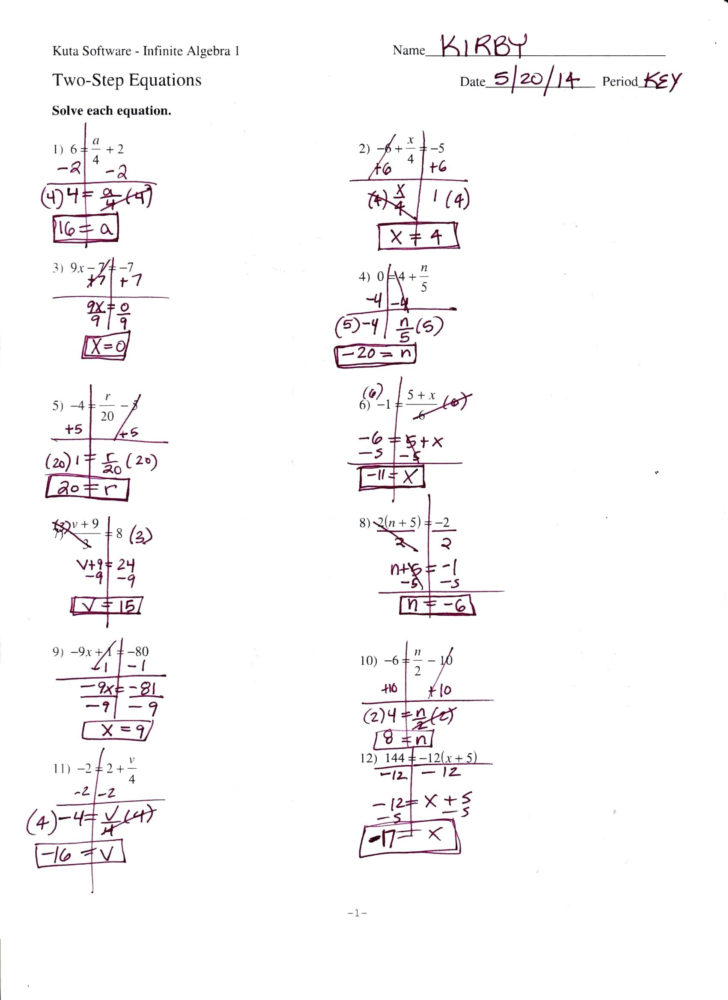 Kuta Software - Infinite Algebra 1
Name KIRBY
Two-Step Equations
Date 5/20/14 Period KEY
Solve each equation.
1) 6 = a/4 + 2
-2 -2
(4) 4 = a/4 (4)
16 = a
2) -6 + x/4 = -5
+6 +6
(4) x/4 1 (4)
x = 4
3) 9x - 7 = -7
+7 +7
9x/9 = 0/9
x = 0
4) 0 = 4 + n/5
-4 -4
(5) -4 n/5 (5)
-20 = n
5) -4 = r/20 - 5
+5 +5
(20) 1 = r/20 (20)
20 = r
(6) 6) -1 = 5 + x/6 (6)
-6 = 5 + x
-5 -5
-11 = x
(3) v + 9/3 = 8 (3)
v+9 = 24
-9 -9
v = 15
8) 2(n + 5)/2 = -2/2
n+5 = -1
-5 -5
n = -6
9) -9x + 1 = -80
-1 -1
-9x/-9 = -81/-9
x = 9
10) -6 = n/2 - 10
+10 +10
(2) 4 = n/2 (2)
8 = n
11) -2 = 2 + v/4
-2 -2
(4) -4 = v/4 (4)
-16 = v
12) 144 = -12(x + 5)
-12 -12
-12 = x + 5
-5 -5
-17 = x
-1-